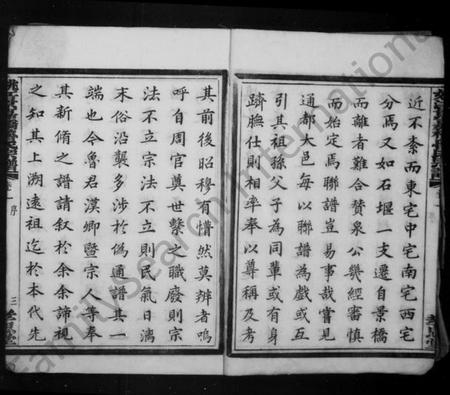 近不紊而東宅中宅南宅西宅
分焉又如石堰一支遷自景橋
而離者難合贊泉公幾經審慎
而始定焉聯譜豈易事哉嘗見
通都大邑每以聯譜為戲或互
引其祖孫父子為同輩或有身
躋膴仕則相率奉以尊稱及考
其前後昭穆有懵然莫辨者嗚
呼自周官奠世繫之職廢則宗
法不立宗法不立則民氣日漓
末俗沿襲多涉於偽通譜其一
端也今魯君漢卿暨宗人等奉
其新脩之譜請敘於余余諦視
之知其上溯遠祖迄於本代先
序
三
FamilySearch International